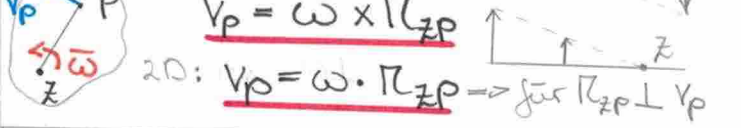 v_P P V_P = ω × r_ZP
ω̄ Z
2D: V_P = ω · r_ZP => für r_ZP ⊥ V_P
Z